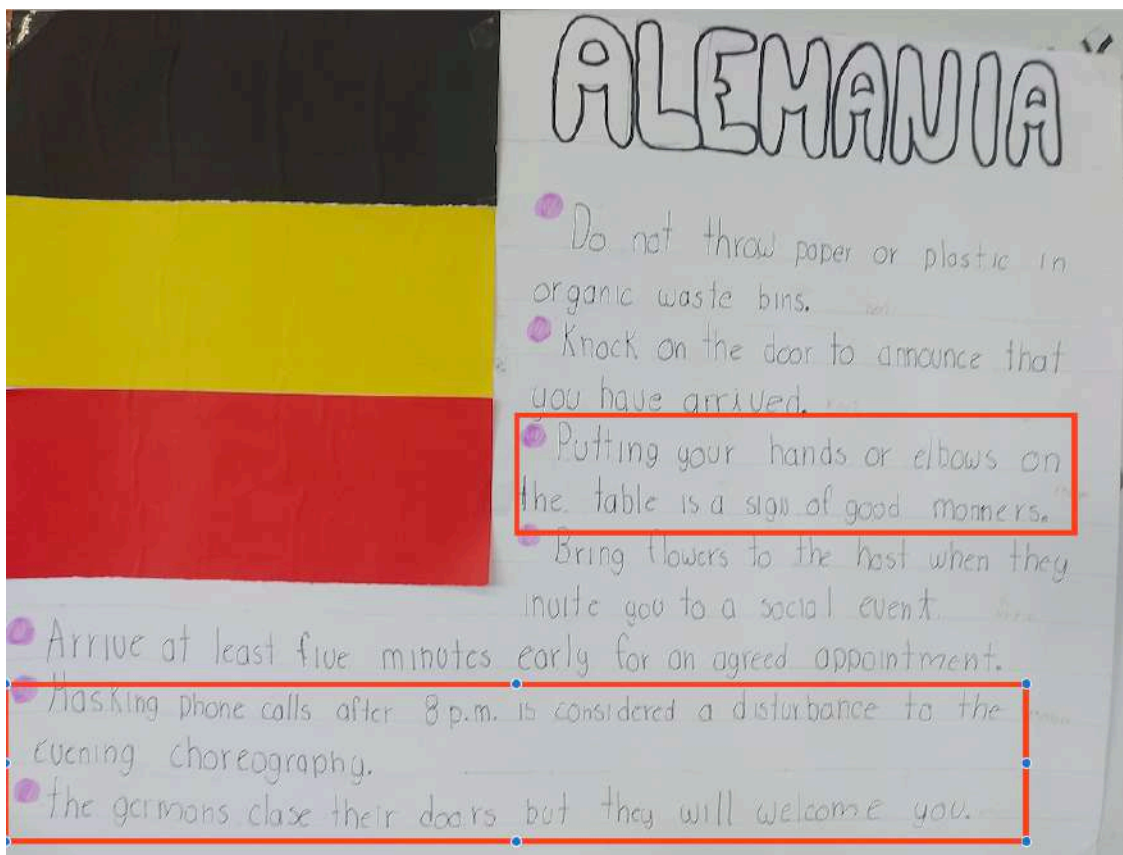 ALEMANIA
Do not throw paper or plastic in
organic waste bins.
Knock on the door to announce that
you have arrived.
Putting your hands or elbows on
the table is a sign of good manners.
Bring flowers to the host when they
invite you to a social event
Arrive at least five minutes early for an agreed appointment.
Masking phone calls after 8 p.m. is considered a disturbance to the
evening choreography.
the germans clase their doors but they will welcome you.